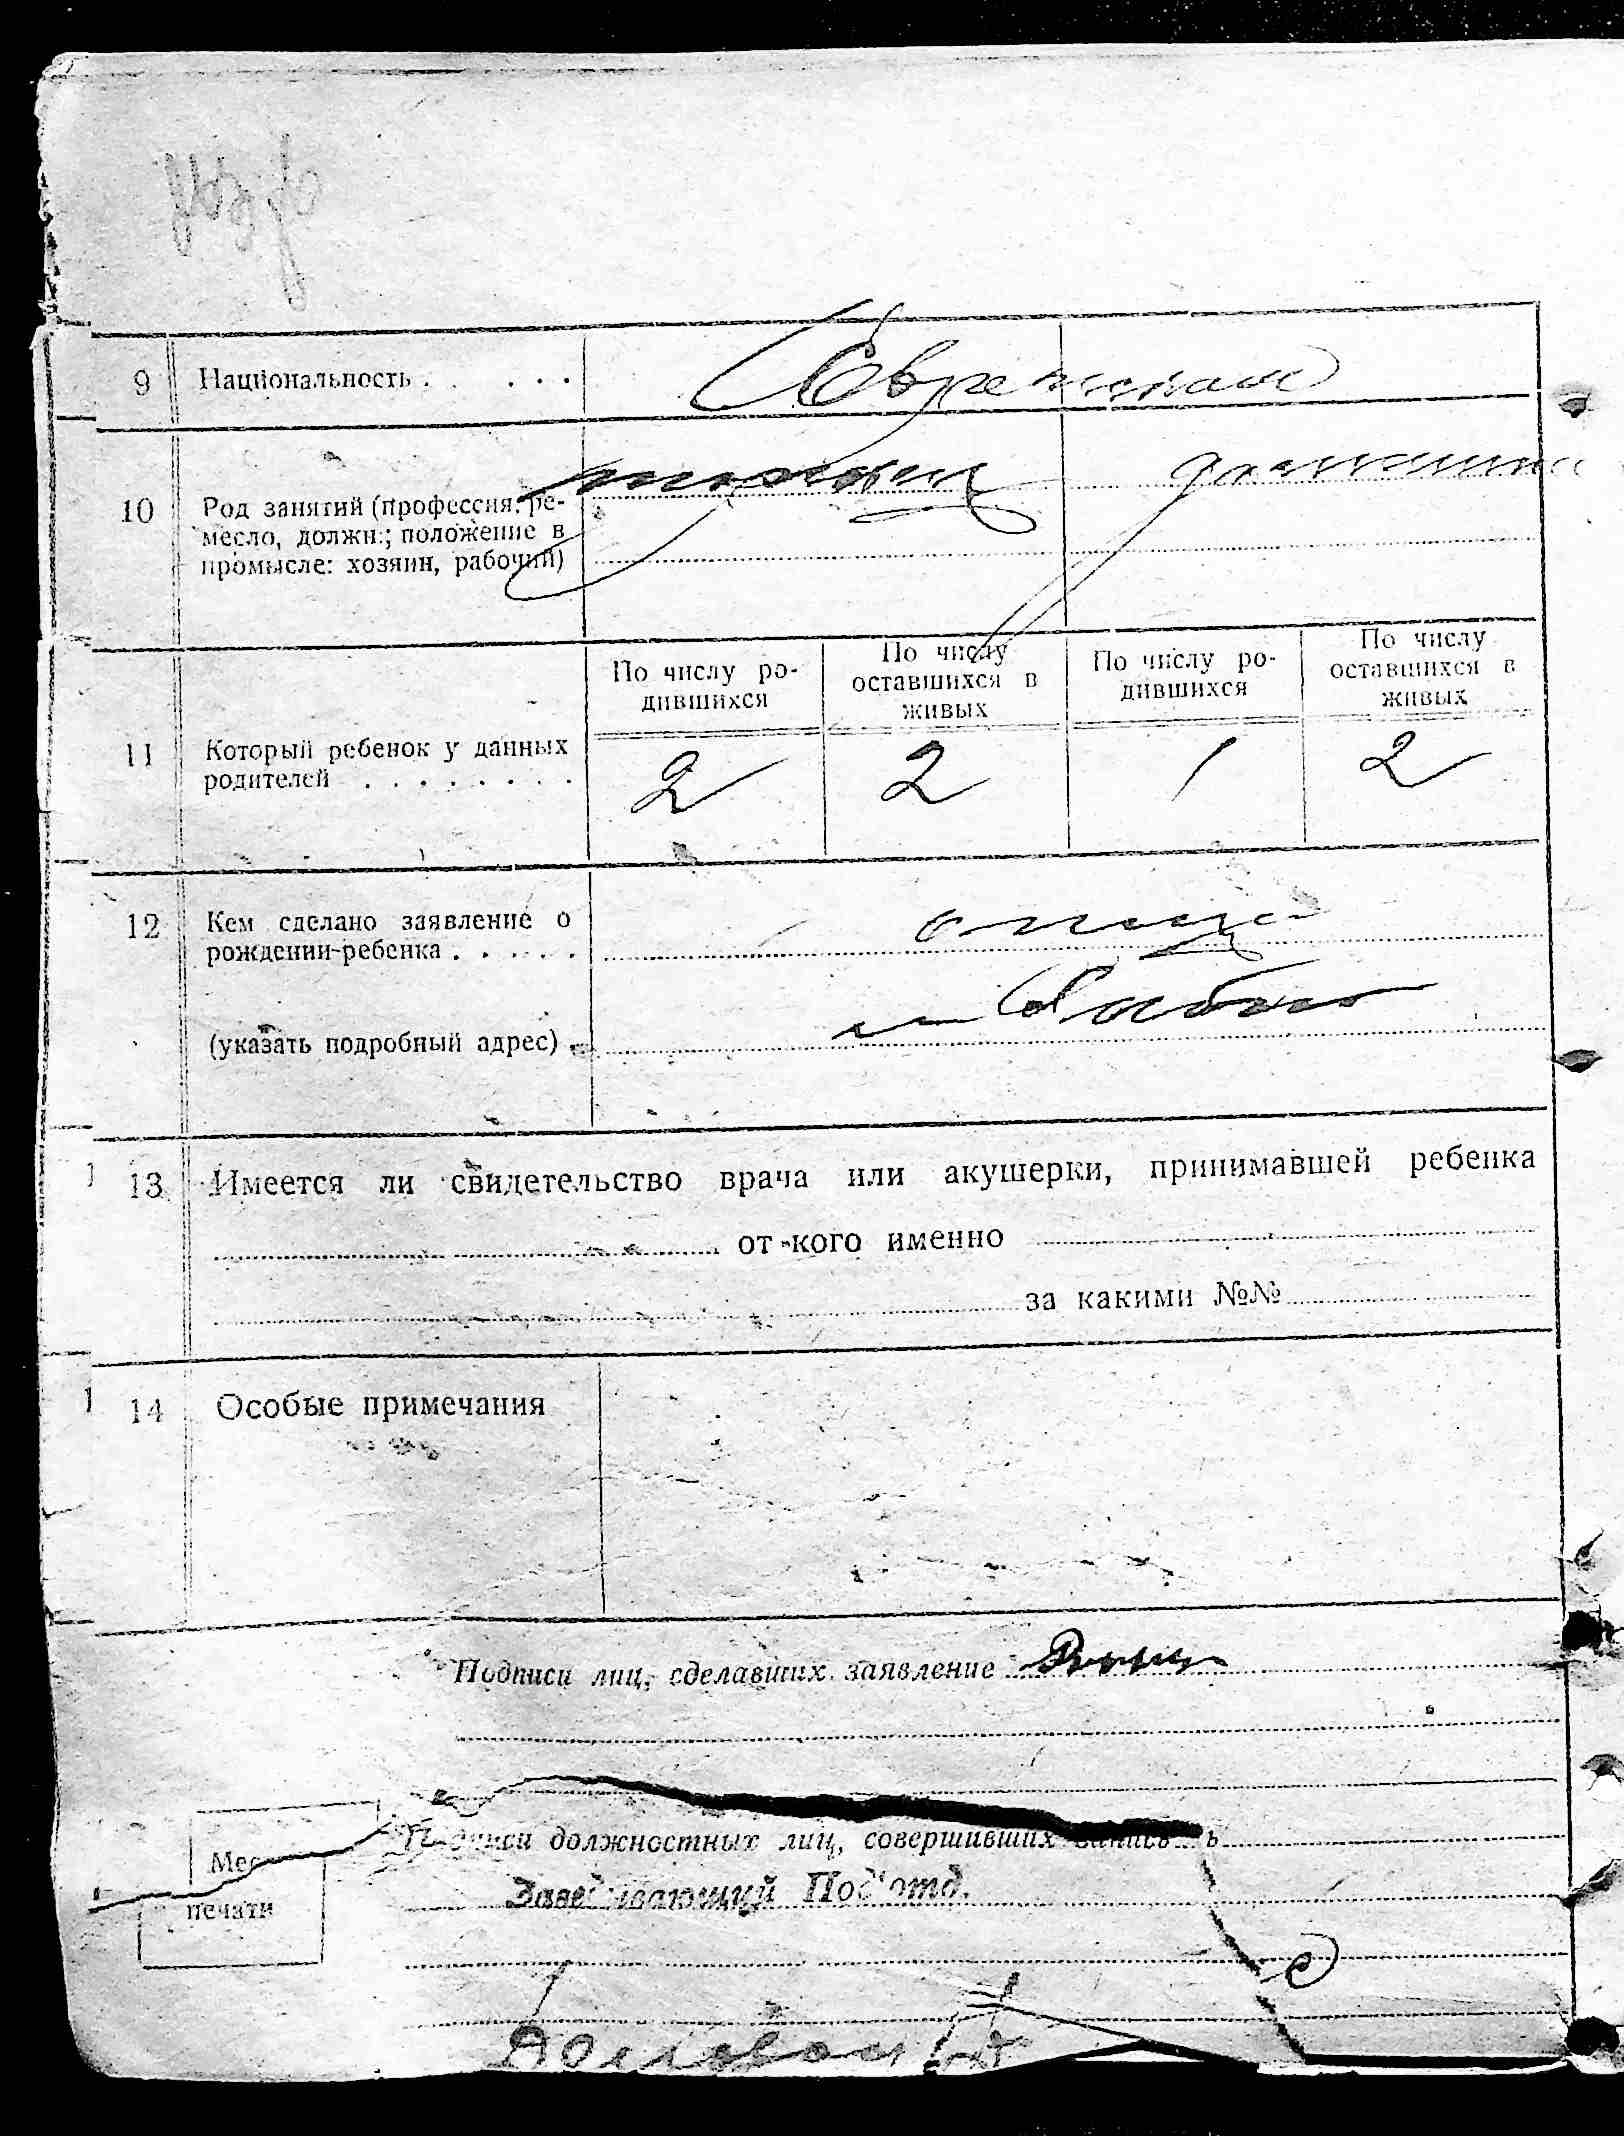 9 Национальность . . . . . .
Еврейская
10 Род занятий (профессия, ре-
месло, должн.; положение в
промысле: хозяин, рабочий)
домашн
По числу ро-
дившихся
По числу
оставшихся в
живых
По числу ро-
дившихся
По числу
оставшихся в
живых
11 Который ребенок у данных
родителей . . . . . . . .
2 2 1 2
12 Кем сделано заявление о
рождении ребенка . . . . .
отца
(указать подробный адрес) .
13 Имеется ли свидетельство врача или акушерки, принимавшей ребенка
от кого именно
за какими №№
14 Особые примечания
Подписи лиц, сделавших заявление
Подписи должностных лиц, совершивших запись
Место
печати
Заведывающий Под'отд.